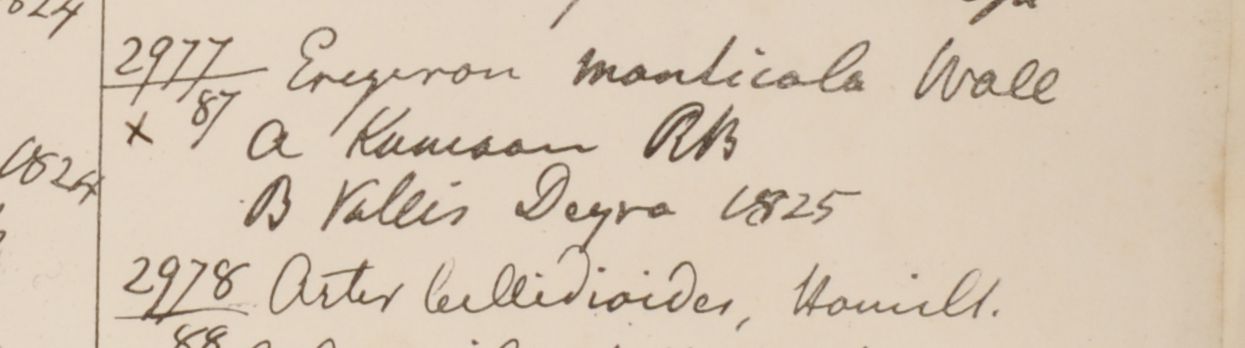 1824
2977 Erigeron monticola Wall
x 87
a Kumaon RB
B Vallis Deyra 1825
2978 Aster bellidioides, Hamilt.
88